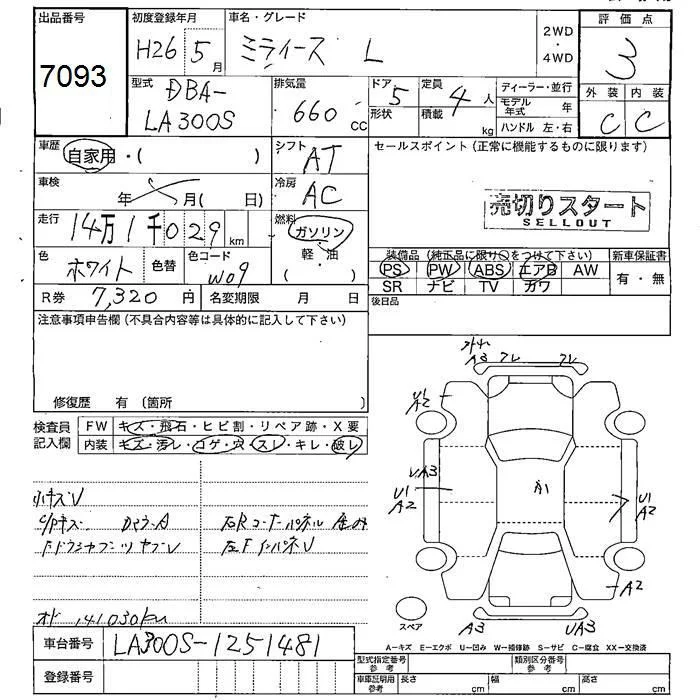 出品番号 初度登録年月 車名・グレード 評価点
7093 H26 5月 ミライース L 2WD・4WD 3
型式 DBA-LA300S 排気量 660 CC ドア 5 形状 定員 4人 積載 kg
ディーラー・並行 モデル年式 年 ハンドル 左・右
外装 内装
C C
車歴 自家用・( ) シフト AT セールスポイント (正常に機能するものに限ります)
車検 年 月( 日) 冷房 AC 売切りスタート
SELLOUT
走行 14万1千029 km 燃料 ガソリン 軽・油 ( )
色 ホワイト 色替 色コード W09
装備品 (純正品に限り○をつけて下さい) 新車保証書
PS PW ABS エアB AW 有・無
SR ナビ TV カワ
R券 7,320 円 名変期限 月 日 後日品
注意事項申告欄 (不具合内容等は具体的に記入して下さい)
修復歴 有 (箇所 )
検査員記入欄 FW キズ・飛石・ヒビ割・リペア跡・X要
内装 キズ・汚レ・コゲ・穴・スレ・キレ・破レ
小キズV
オド 141030km
A3 フレ フレ
U1 A2
UA3
U1 A2
A1
U1 A2
A2
スペア A3 UA3
A-キズ E-エクボ U-凹み W-補修跡 S-サビ C-腐食 XX-交換済
車台番号 LA300S-1251481
登録番号
型式指定番号 参考 類別区分番号 参考
車庫証明用 参考 長さ cm 幅 cm 高さ cm